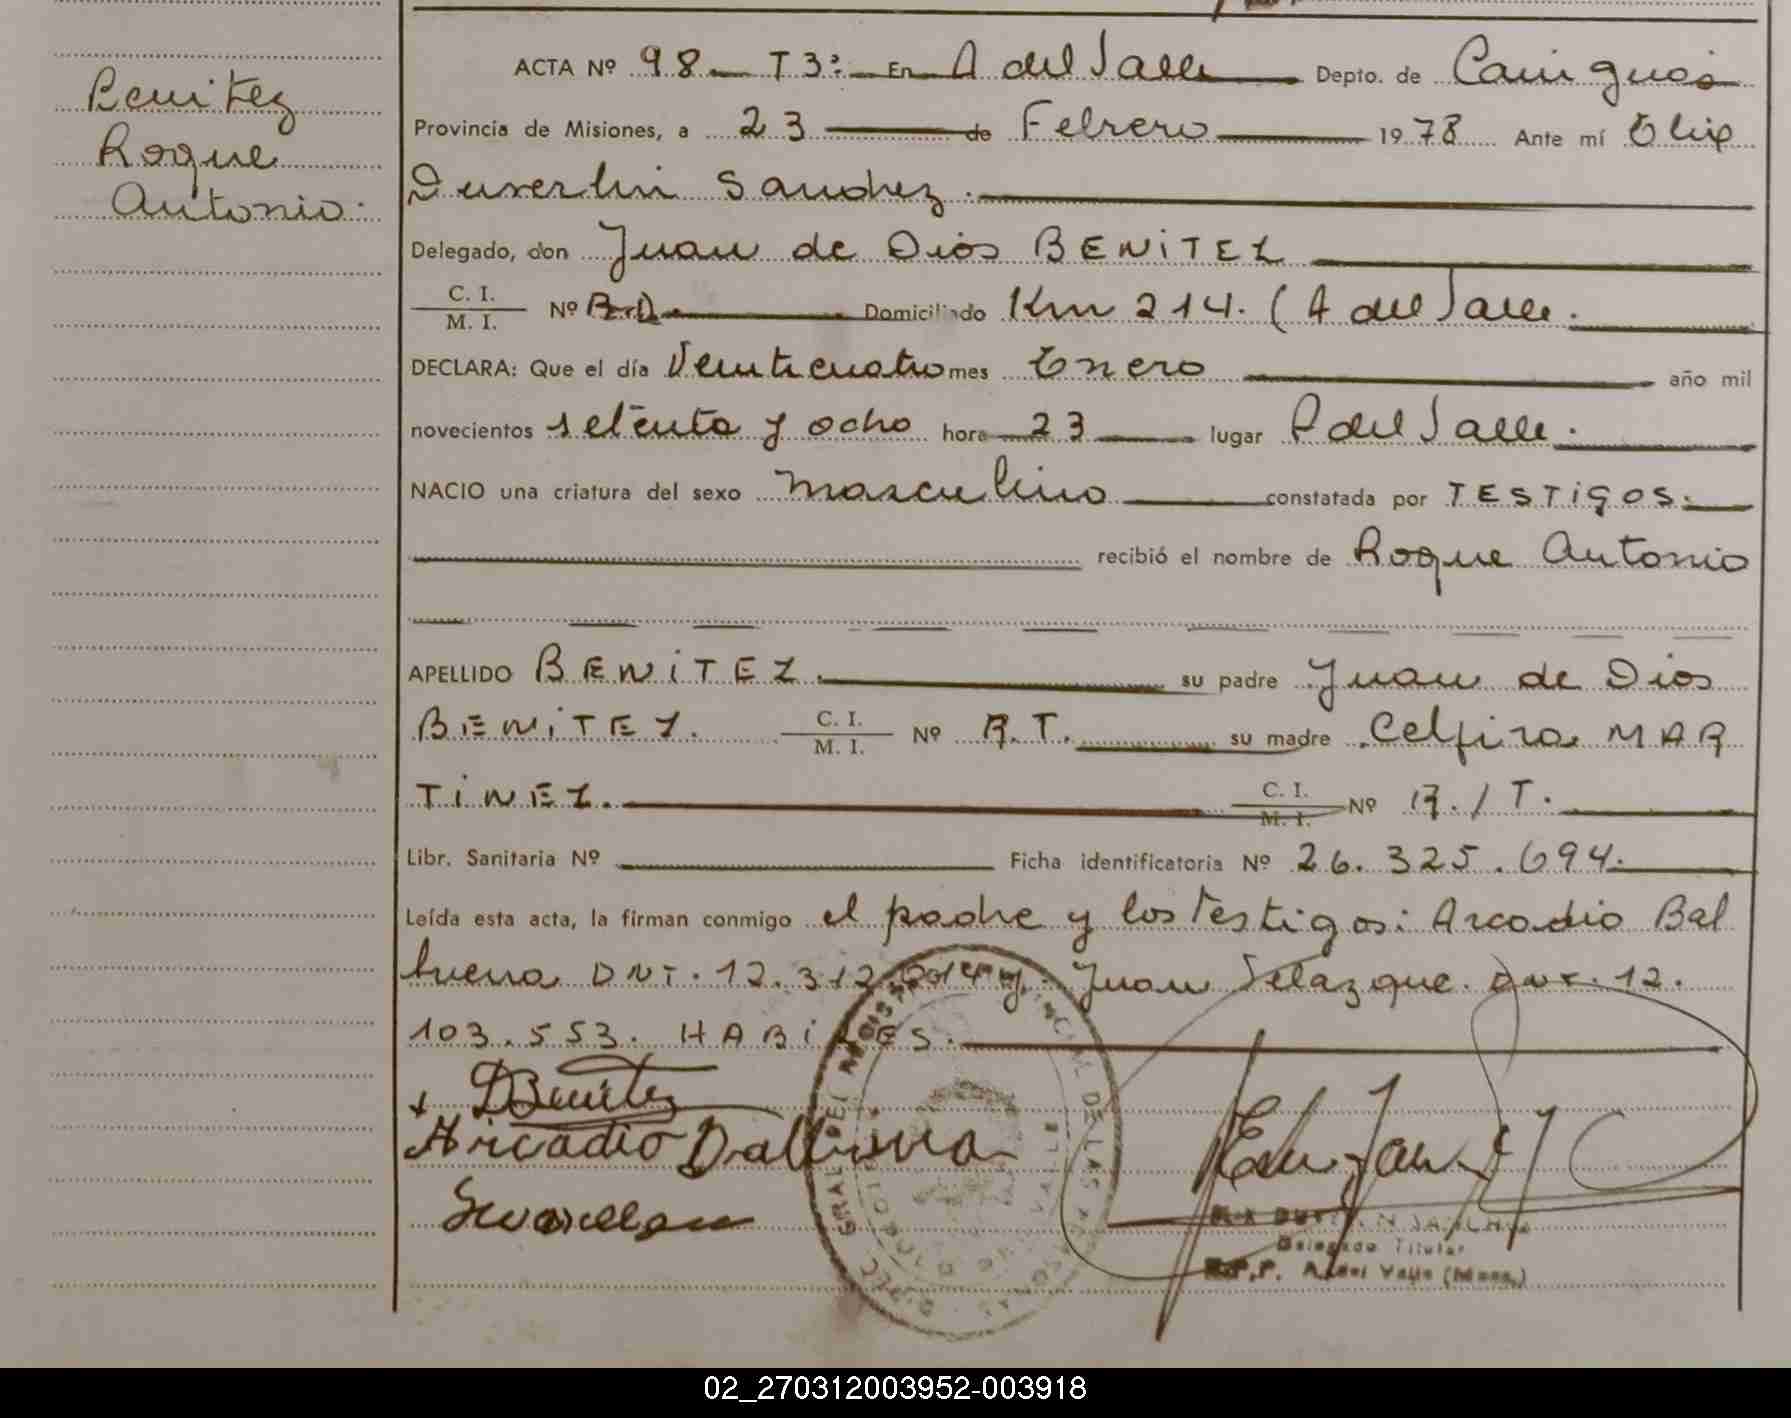 Benitez
Roque
Antonio.
ACTA Nº 98 T3: En A del Valle Depto. de Cainguás
Provincia de Misiones, a 23 de Febrero 1978 Ante mí Elix
Duxerlin Sanchez.
Delegado, don Juan de Dios BENiTEZ
C. I. / M. I. Nº Domiciliado Km 214. (A del Valle.
DECLARA: Que el día Veinticuatro mes Enero año mil
novecientos setenta y ocho hora 23 lugar A del Valle.
NACIO una criatura del sexo masculino constatada por TESTiGOS.
recibió el nombre de Roque Antonio
APELLIDO BENiTEZ. su padre Juan de Dios
BENiTEZ. C. I. / M. I. Nº R.T. su madre Celfira MAR
TiNEZ. C. I. / M. I. Nº R./T.
Libr. Sanitaria Nº Ficha identificatoria Nº 26.325.694.
Leída esta acta, la firman conmigo el padre y los Testigos: Arcadio Bal
buena DNI. 12.312. y. Juan Velazque. DNI. 12.
103.553. HABiLES.
DBenitez
Arcadio Balbuena
Delegado Titular
R.P.P. A. del Valle (Mnes.)
02_270312003952-003918